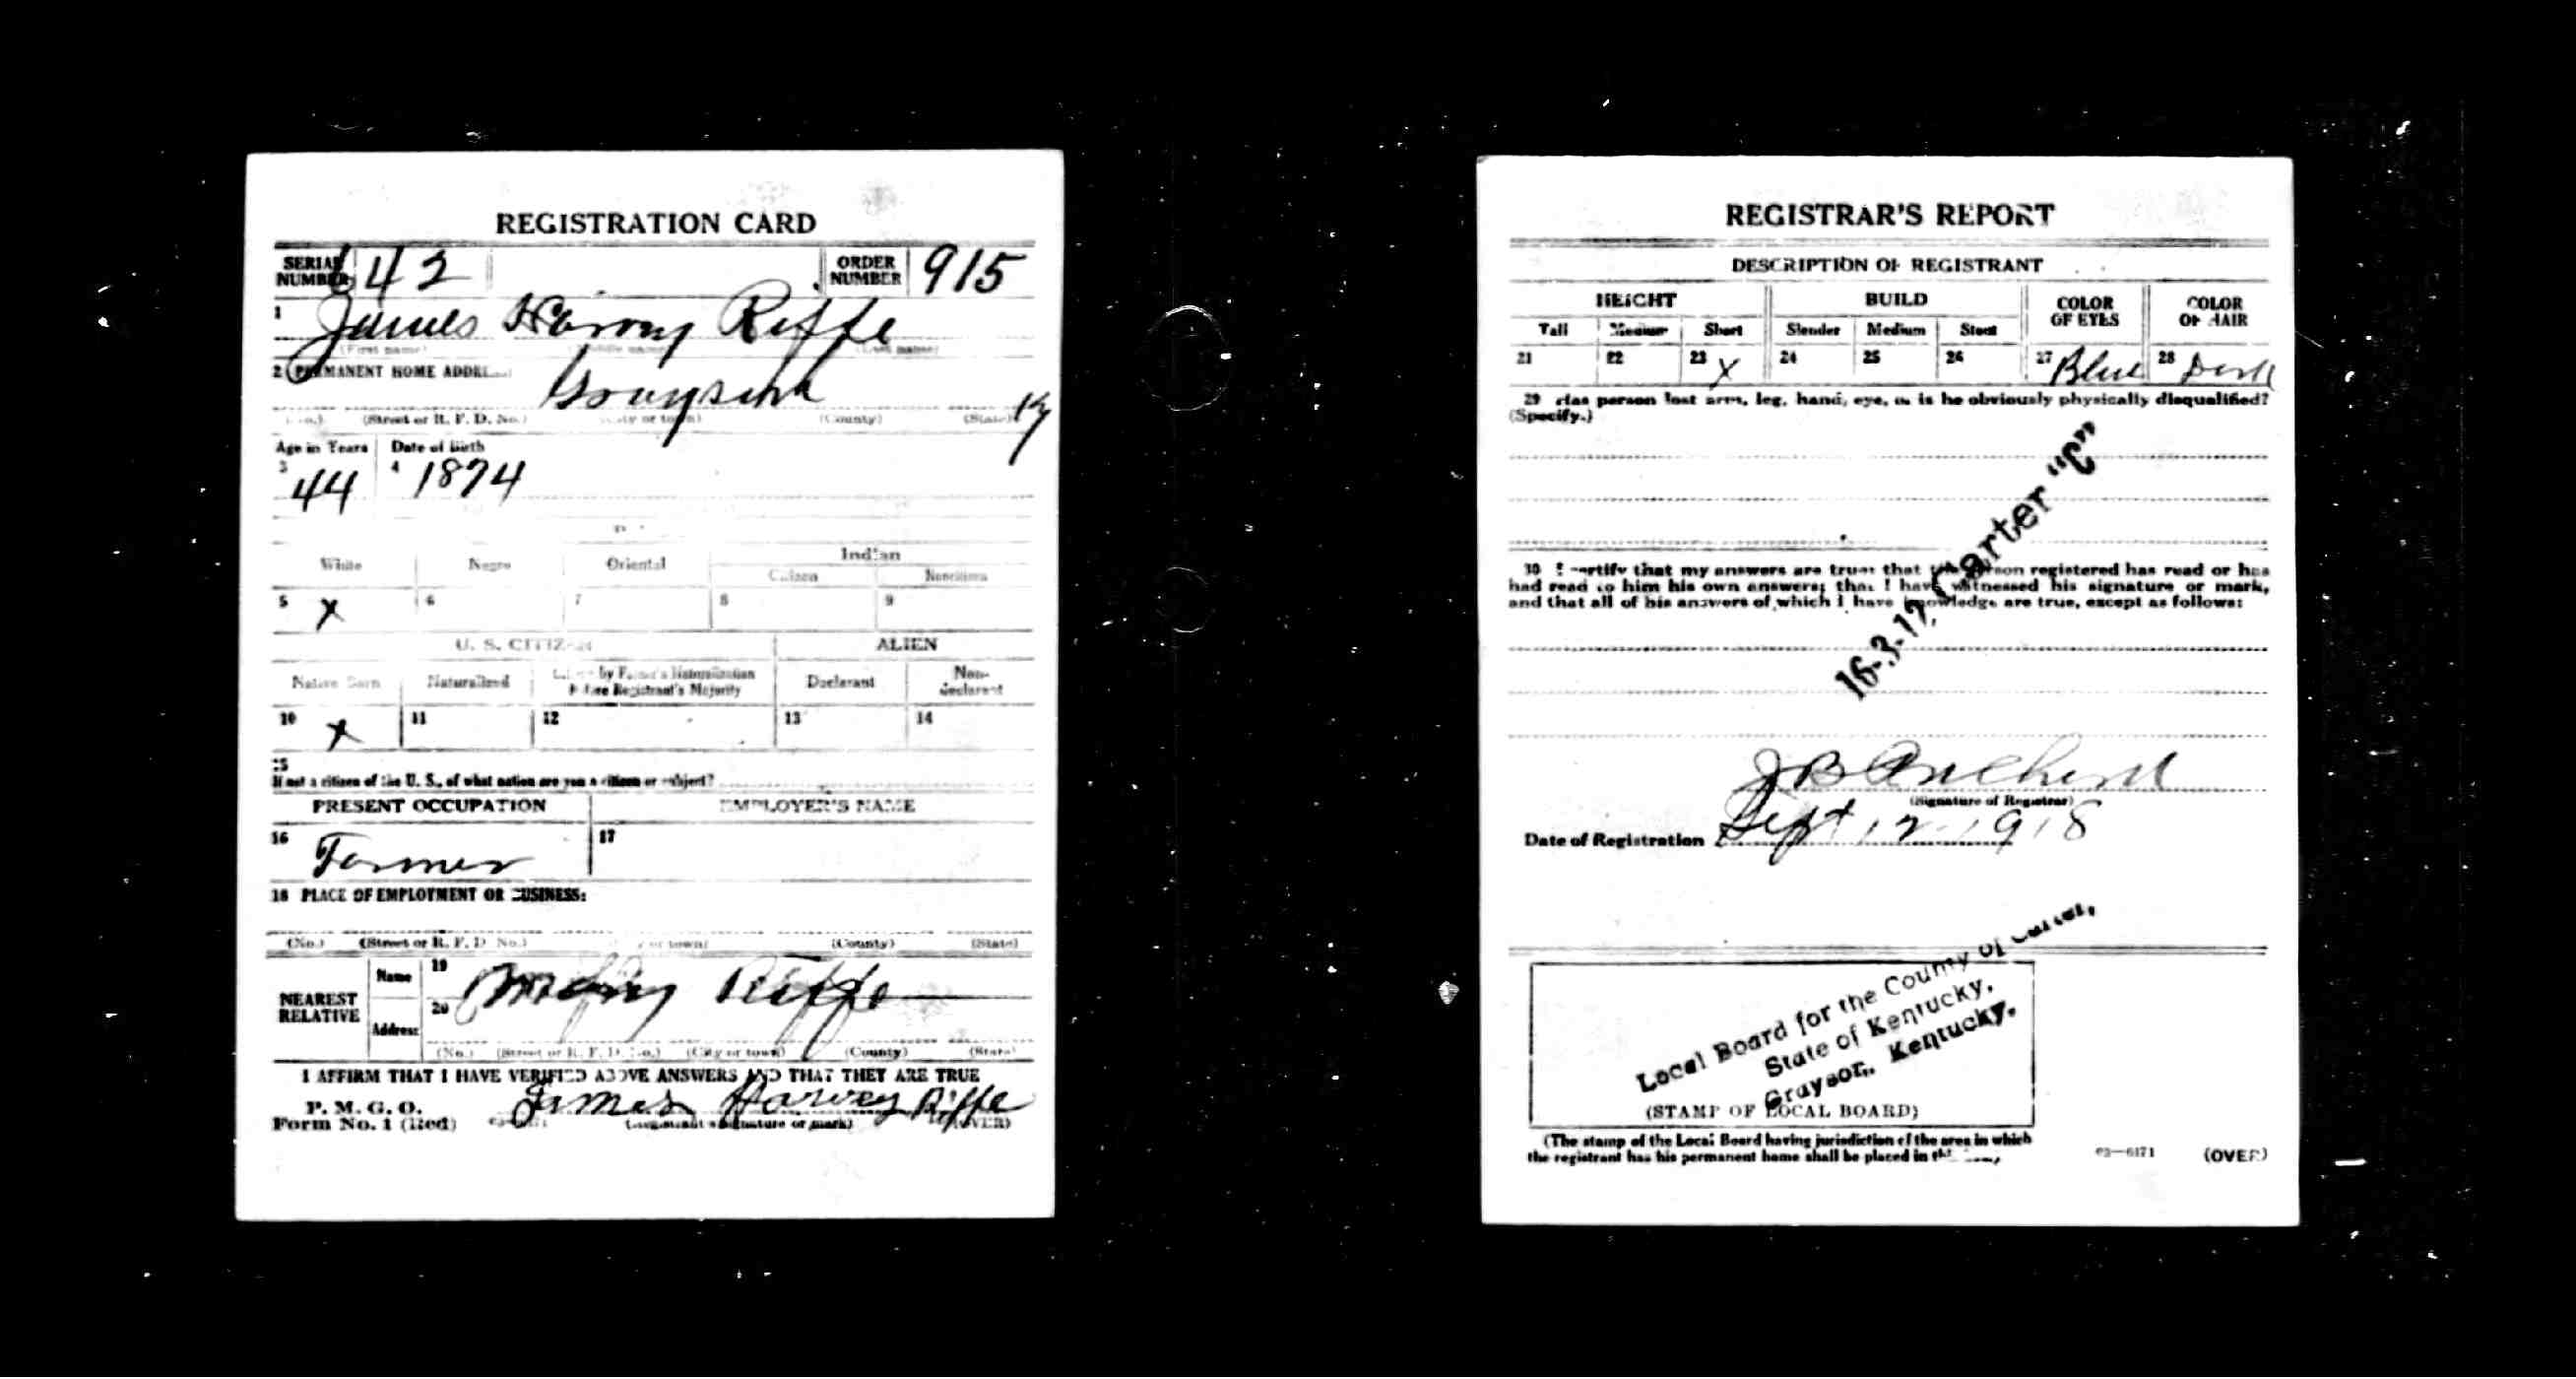 REGISTRATION CARD
SERIAL NUMBER 642 ORDER NUMBER 915
1 James Harvey Riffe
(First name) (Middle name) (Last name)
2 PERMANENT HOME ADDRESS:
Grayson Ky
(No.) (Street or R. F. D. No.) (City or town) (County) (State)
Age in Years Date of Birth
3 44 4 1874
White Negro Oriental Indian
Citizen Noncitizen
5 X 6 7 8 9
U. S. CITIZEN ALIEN
Native Born Naturalized Citizen by Father's Naturalization Before Registrant's Majority Declarant Non-declarant
10 X 11 12 13 14
15
If not a citizen of the U. S., of what nation are you a citizen or subject?
PRESENT OCCUPATION EMPLOYER'S NAME
16 Farmer 17
18 PLACE OF EMPLOYMENT OR BUSINESS:
(No.) (Street or R. F. D. No.) (City or town) (County) (State)
NEAREST RELATIVE Name 19 Riffe
Address 20
(No.) (Street or R. F. D. No.) (City or town) (County) (State)
I AFFIRM THAT I HAVE VERIFIED ABOVE ANSWERS AND THAT THEY ARE TRUE
P. M. G. O.
Form No. 1 (Red) James Harvey Riffe
(Registrant's signature or mark) (OVER)
REGISTRAR'S REPORT
DESCRIPTION OF REGISTRANT
HEIGHT BUILD COLOR OF EYES COLOR OF HAIR
Tall Medium Short Slender Medium Stout
21 22 23 X 24 25 26 27 Blue 28 Dark
29 Has person lost arm, leg, hand, eye, or is he obviously physically disqualified?
(Specify.)
16-3-17 Carter "C"
30 I certify that my answers are true; that the person registered has read or has
had read to him his own answers; that I have witnessed his signature or mark,
and that all of his answers of which I have knowledge are true, except as follows:
J B
(Signature of Registrar)
Date of Registration Sept 12 1918
Local Board for the County of Carter,
State of Kentucky,
Grayson, Kentucky.
(STAMP OF LOCAL BOARD)
(The stamp of the Local Board having jurisdiction of the area in which
the registrant has his permanent home shall be placed in this box.)
03—6171 (OVER)